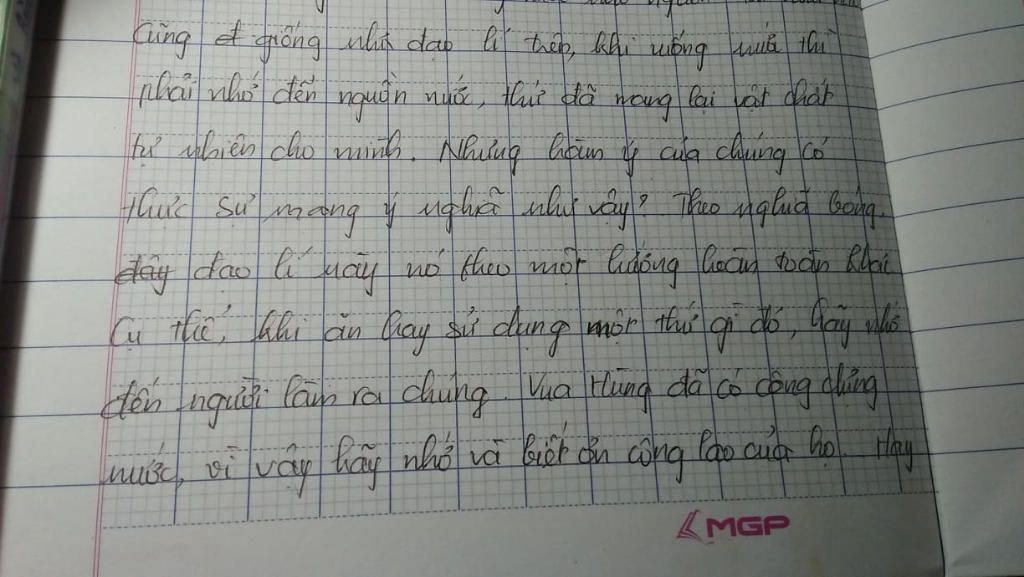 Cũng et giống như đạo lí trên, khi uống nước thì
phải nhớ đến nguồn nước, thứ đã mang lại vật chất
tự nhiên cho mình. Nhưng hàm ý của chúng có
thực sự mang ý nghĩa như vậy? Theo nghĩa bóng,
đây đạo lí này nó theo một hướng hoàn toàn khác
Cụ thể, khi ăn hay sử dụng một thứ gì đó, hãy nhớ
đến người làm ra chúng. Vua Hùng đã có công dựng
nước, vì vậy hãy nhớ và biết ơn công lao của họ. Hay
MGP